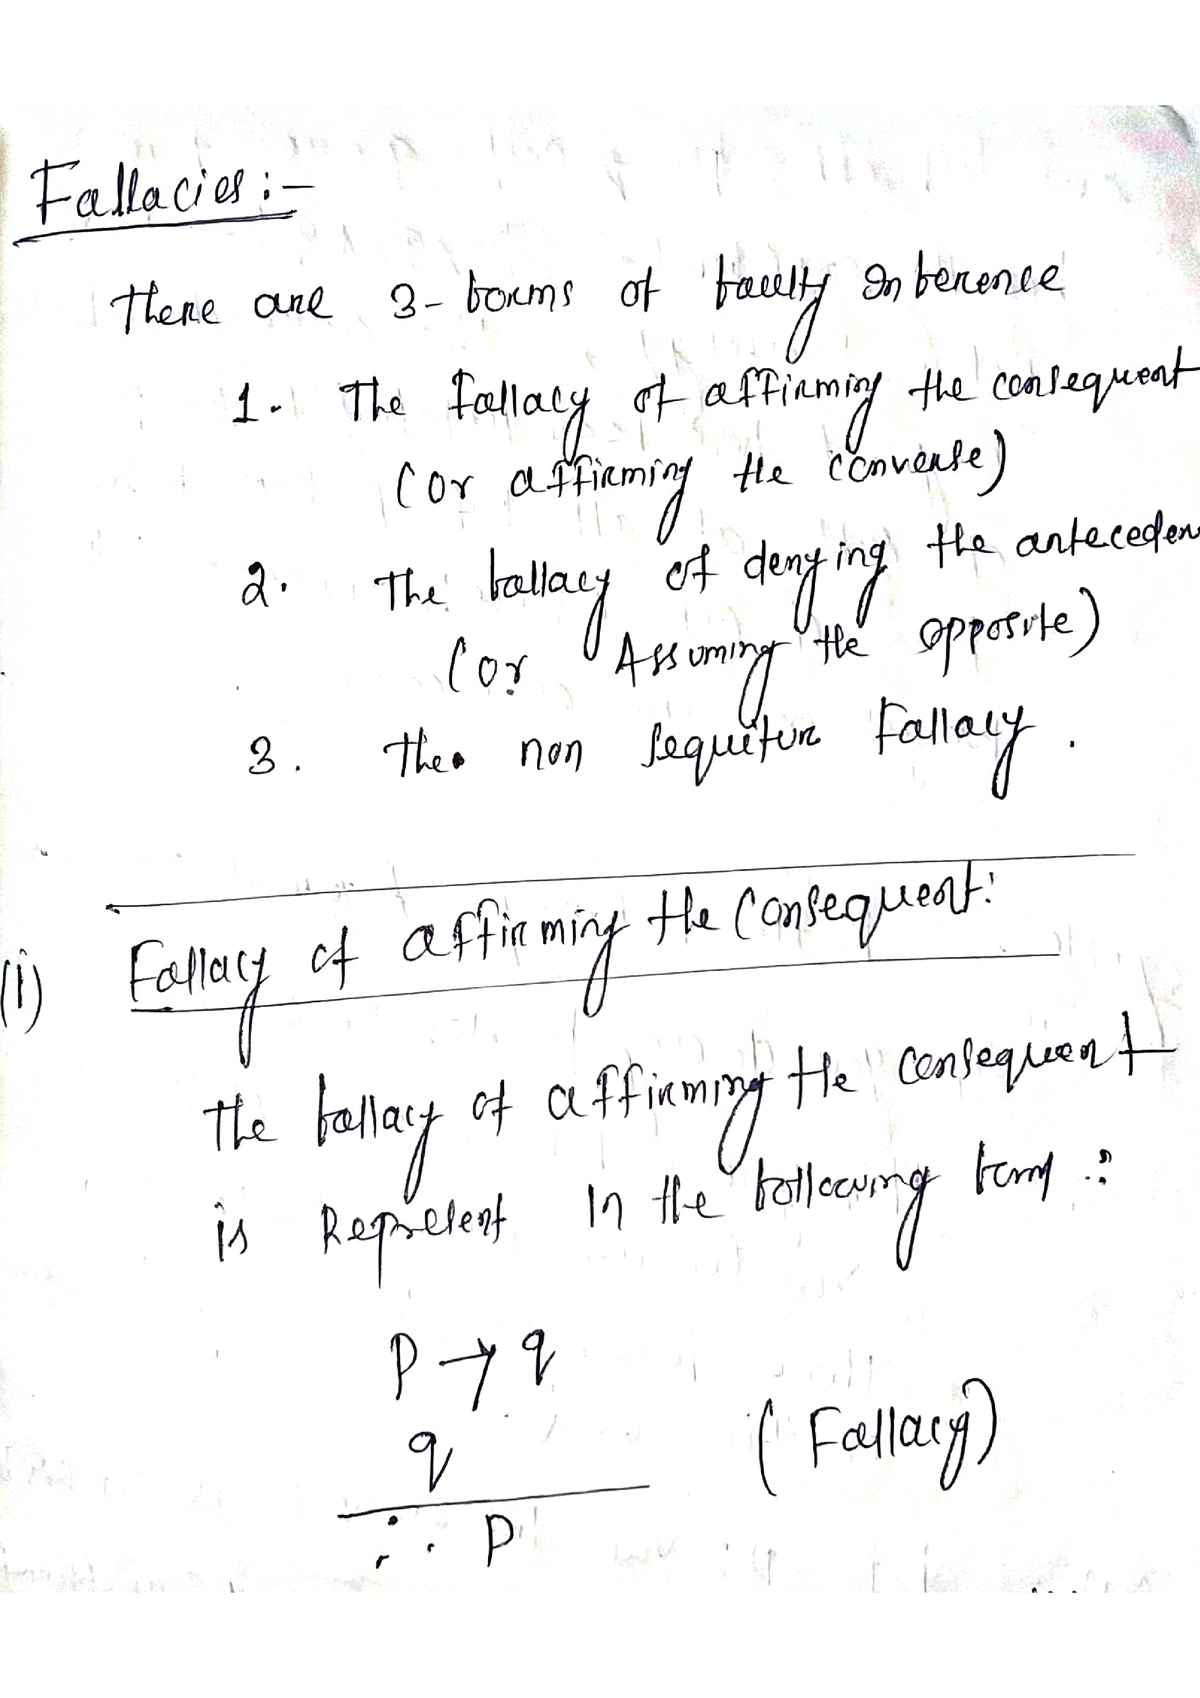 Fallacies :-
There are 3- forms of faulty Inference
1. The fallacy of affirming the consequent
(or affirming the converse)
2. The fallacy of denying the anteceden
(or Assuming the opposite)
3. The non sequitur Fallacy.
(i) Fallacy of affirming the Consequent:
The fallacy of affirming the consequent
is Represent In the following form :
P → q
q
(Fallacy)
∴ P